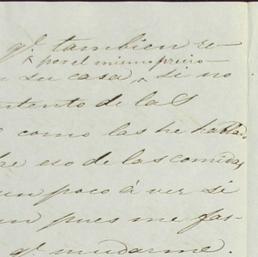 qᵉ. tambien re-
por el mismo precio
n su casa ^ si no
ntento de las
como las he hablado
re eso de las comidas
un poco á ver si
n pues me fas-
qᵉ mudarme.